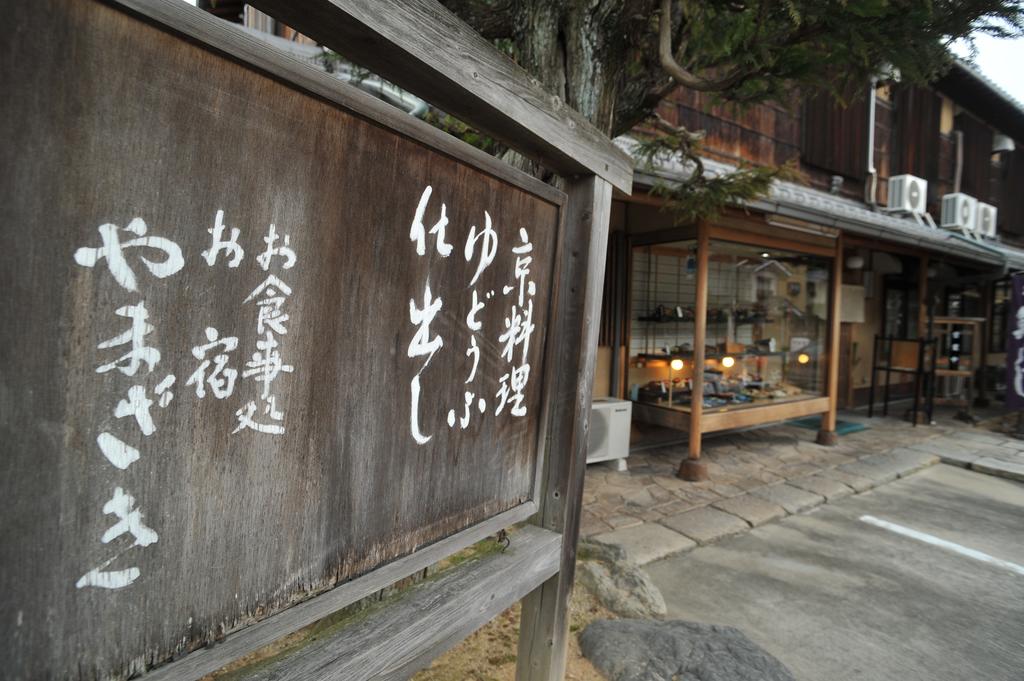 京料理
ゆどうふ
仕出し
お食事処
お宿
やまざき